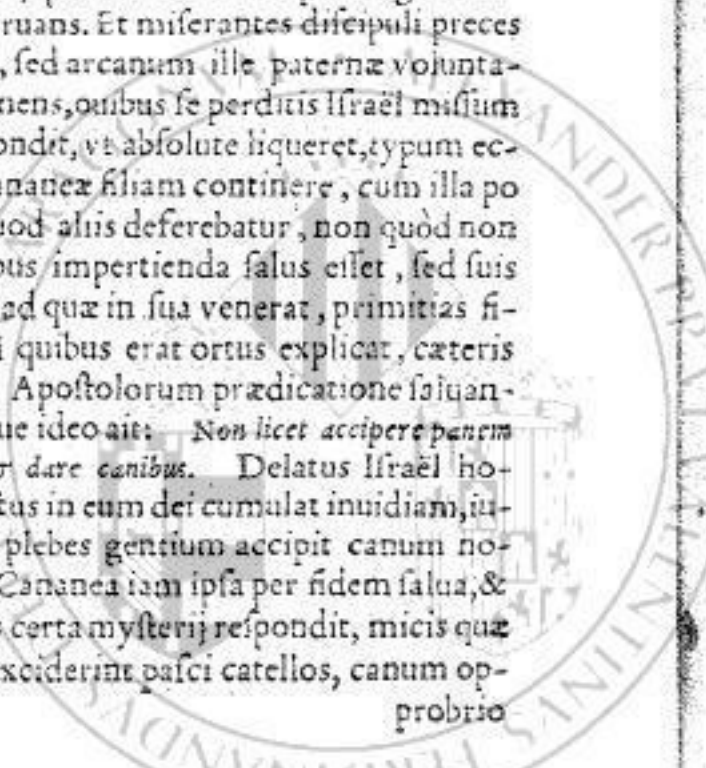 ruans. Et miſerantes diſcipuli preces
, ſed arcanum ille paternæ volunta-
nens,quibus ſe perditis Iſraël miſſum
ondit, vt abſolute liqueret,typum ec-
naneæ filiam continere, cum illa po
uod aliis deferebatur, non quòd non
bus impertienda ſalus eſſet, ſed ſuis
ad quæ in ſua venerat, primitias fi-
i quibus erat ortus explicat, cæteris
Apoſtolorum prædicatione ſaluan-
ue ideo ait: Non licet accipere panem
r dare canibus. Delatus Iſraël ho-
tus in eum dei cumulat inuidiam,iu-
plebes gentium accipit canum no-
Cananea iam ipſa per fidem ſalua,&
certa myſterij reſpondit, micis quæ
xciderint paſci catellos, canum op-
probrio